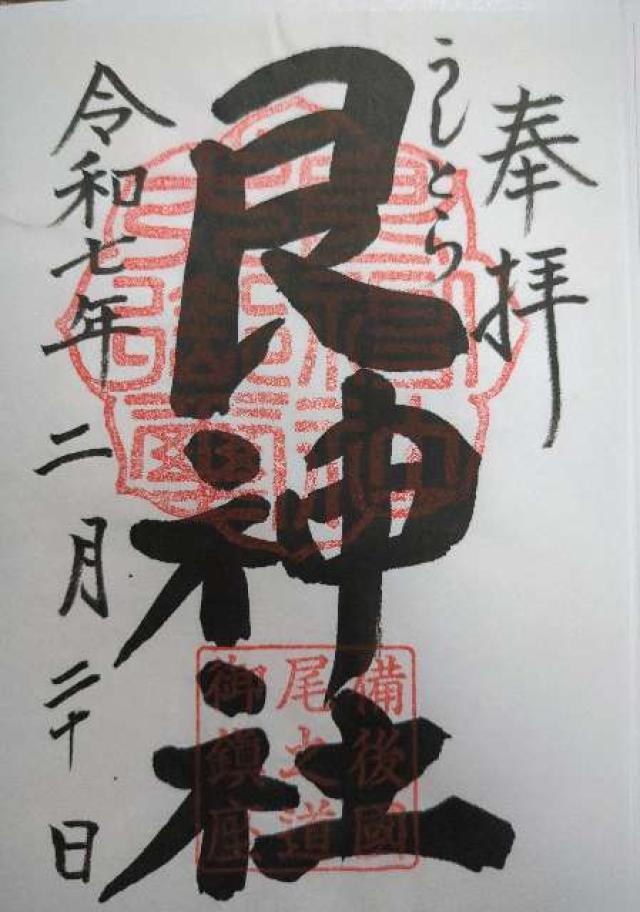 奉拝
うしとら
艮神社
令和七年二月二十日
備後國
尾之道
御鎮座